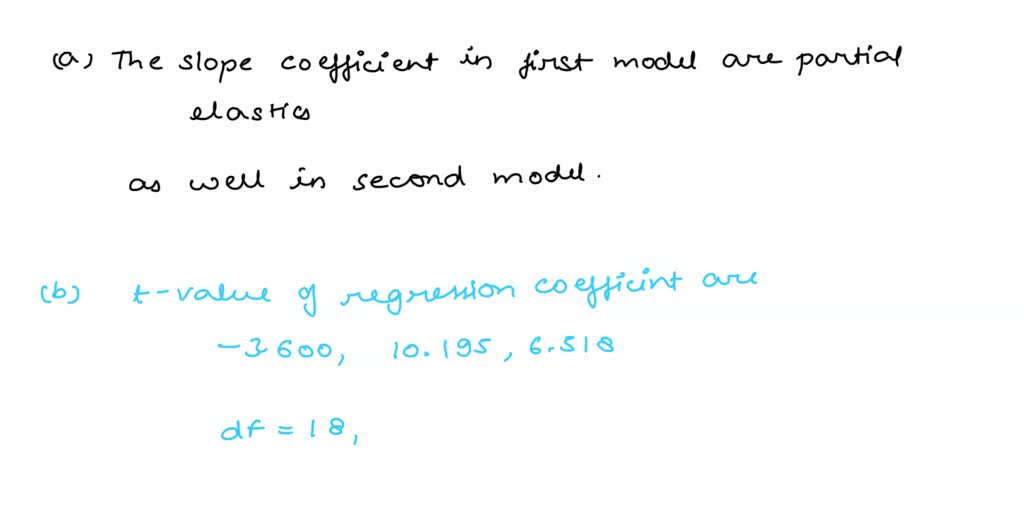 (a) The slope coefficient in first model are partial
elastics
as well in second model.
(b) t-value of regression coefficint are
-3600, 10.195, 6.518
df = 18,